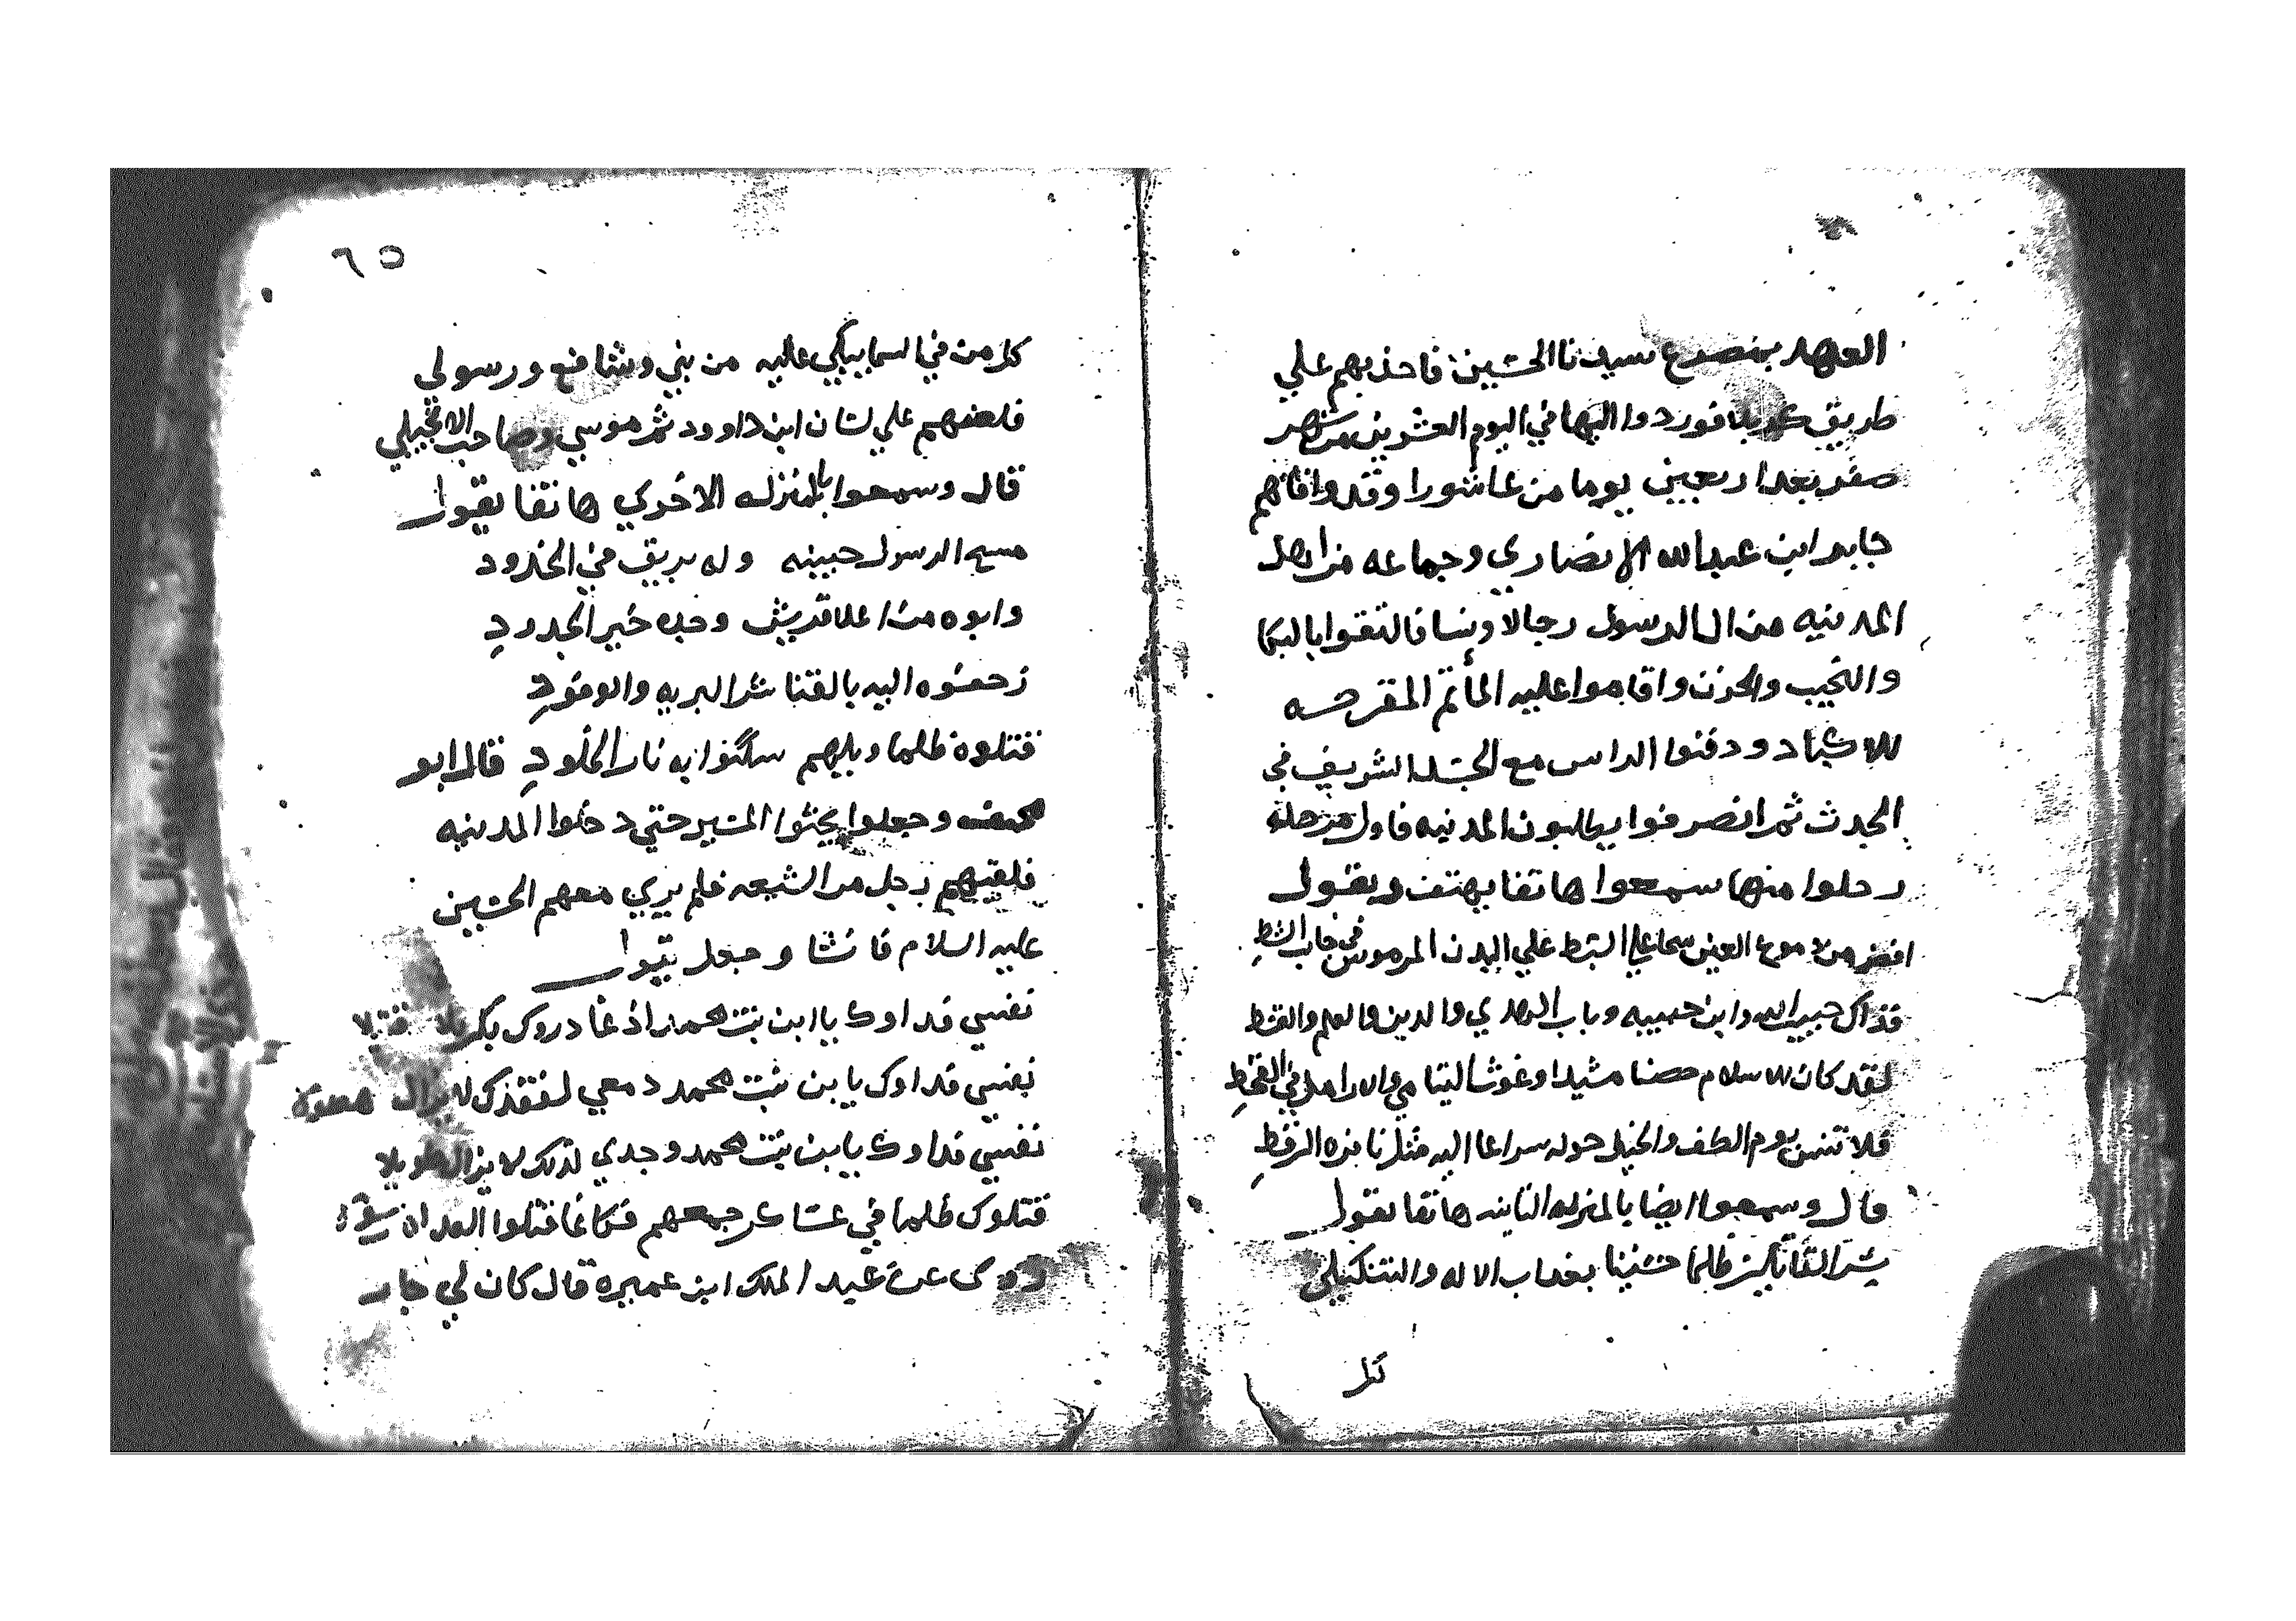 العهد بمصرع سيدنا الحسين فاخذ بهم علي
طريق كربلا فوردوا اليها في اليوم العشرين من شهر
صفر بعد اربعين يوما من عاشورا وقد وافاهم
جابر ابن عبد الله الانصاري وجماعه من اهل
المدينه من ال الرسول رجالا ونسا فالتقوا بالبكا
والنحيب والحزن واقاموا عليه المأتم المقرحه
للاكباد ودفنوا الراس مع الجسد الشريف في
الجدث ثم انصرفوا يطلبون المدينه فاول مرحلة
رحلوا منها سمعوا هاتفا يهتف ويقول
من دموع العين سحا علي السبط علي البدن المرموس في جانب الشط
فذاك حبيب الله وابن حبيبه وباب الهدي والدين والعلم والقسط
لقد كان للاسلام حصنا مشيدا وغوثا ليتامي والارامل في القحط
فلا تنس يوم الطف والخيل حوله سراعا اليه مثل نافره الرقط
قال وسمعوا ايضا بالمنزله الثانيه هاتفا يقول
القاتلين ظلما حسينا بعذاب الاله والتنكيلي
كل
٦٥
كل من في السما يبكي عليه من نبي وشافع ورسولي
فلعنهم علي لسان ابن داوود ثم موسي وصاحب الانجيلي
قال وسمعوا بالمنزله الاخري هاتفا يقول
مسح الرسول جبينه وله بريق في الخدود
وابوه من اعلا قريش وجده خير الجدود
زحفوه اليه بالقنا شر البريه والوفود
قتلوه ظلما ويلهم سكنوا به نار الخلود قال ابو
مخنف وجعلوا يحثوا المسير حتي دخلوا المدينه
فلقيهم رجل من الشيعه فلم يري معهم الحسين
عليه السلام فانشا وجعل يقول
نفسي فداوك يا ابن بنت محمد اذ غادروك بكربلا قتيلا
نفسي فداوك يابن بنت محمد دمعي لفقدك لا يزال
نفسي فداوك يابن بنت محمد وجدي لذلك لا يزال طويلا
قتلوك ظلما في عساكر جمعهم فكانما قتلوا العدا
روي عن عبد الملك ابن عميره قال كان لي جار